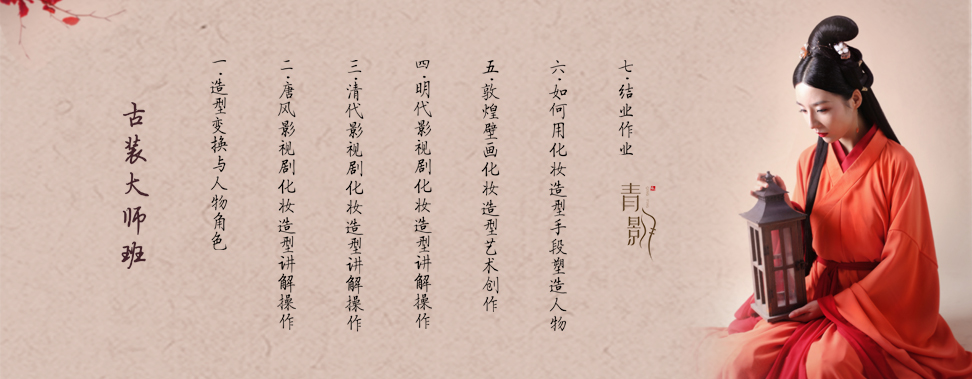 古装大师班
一·造型变换与人物角色
二·唐风影视剧化妆造型讲解操作
三·清代影视剧化妆造型讲解操作
四·明代影视剧化妆造型讲解操作
五·敦煌壁画化妆造型艺术创作
六·如何用化妆造型手段塑造人物
七·结业作业
青影